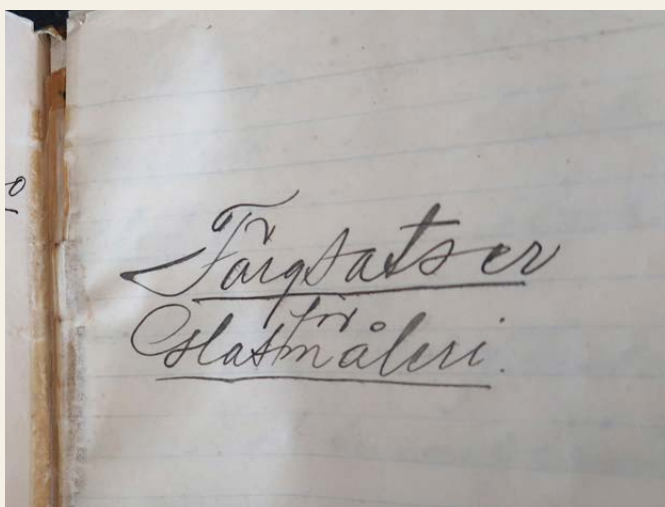 Färgsatser
för
Glasmåleri.